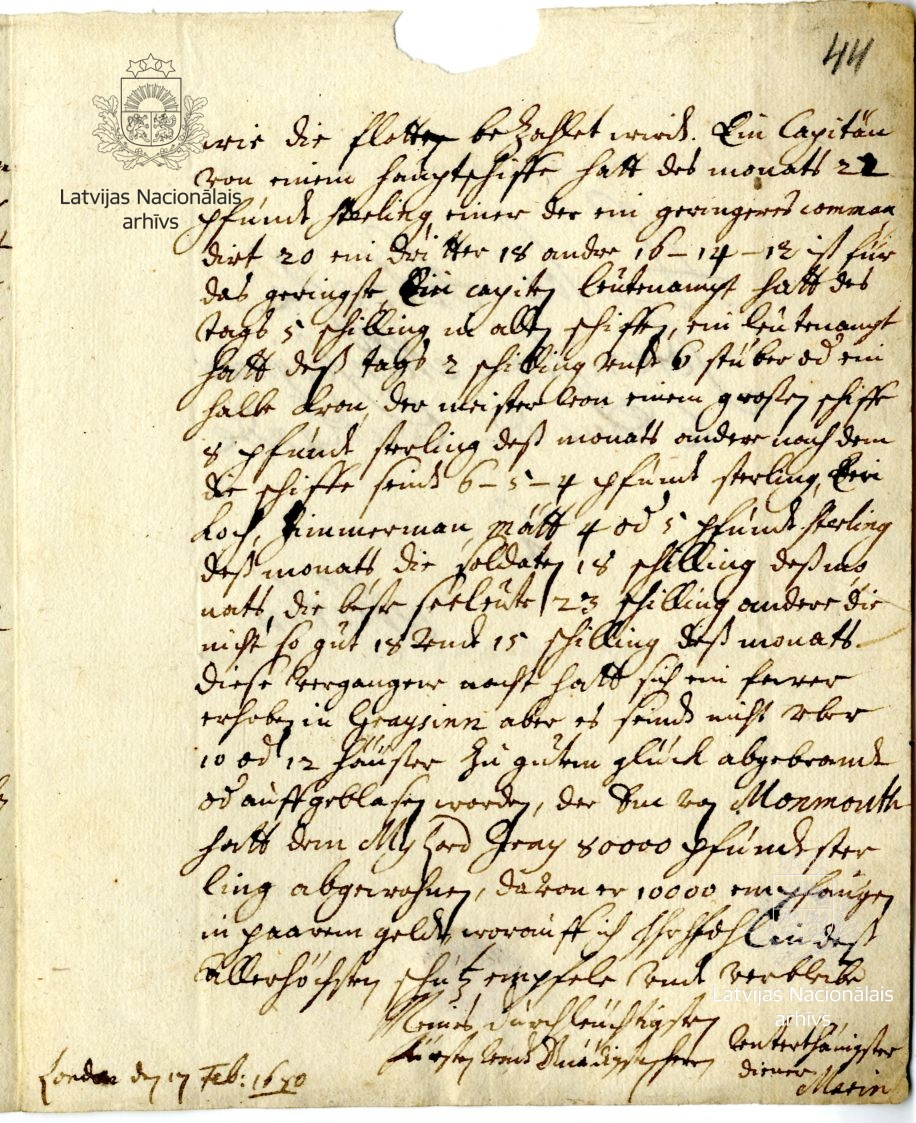 44
Latvijas Nacionālais
arhīvs
wie die flotten bezahlet wirdt. Ein Capitän
von einem hauptschiffe hatt des monats 22
pfundt sterling einer der ein geringeres comman
dirt 20 ein dritter 18 andre 16 – 14 – 12 ist für
das geringste, Ein capiten leutenampt hatt des
tags 5 schilling in allen schiffen, ein leutenampt
hatt deß tags 2 schilling undt 6 stüber od ein
halbe kron, der meister von einem großen schiffe
8 pfundt sterling deß monats andere nach dem
die schiffe seindt 6 – 5 – 4 pfundt sterling, Ein
koch, Zimmerman, 4 od 5 pfundt sterling
deß monats die soldaten 18 schilling deß mo
nats, die beste seeleute 23 schilling andere die
nicht so gut 18 undt 15 schilling deß monats
diese vergangene nacht hatt sich ein fewer
erhoben in Graysinn aber es seindt nicht uber
10 od 12 häuser zu gutem glück abgebrandt
od auffgeblasen worden, der Duc von Monmouth
hatt dem Mylord Gray 80000 pfundt ster
ling abgewohnen, davon er 10000 empfangen
in paarem gelde, worauff ich in deß
Allerhöchsten schutz empfele undt verbleibe
Latvijas Nacionālais
arhīvs
Meines durchleuchtigsten
fürsten undt Gnädigsten herren
unterthänigster
diener
Marin
London den 17 Feb: 1670